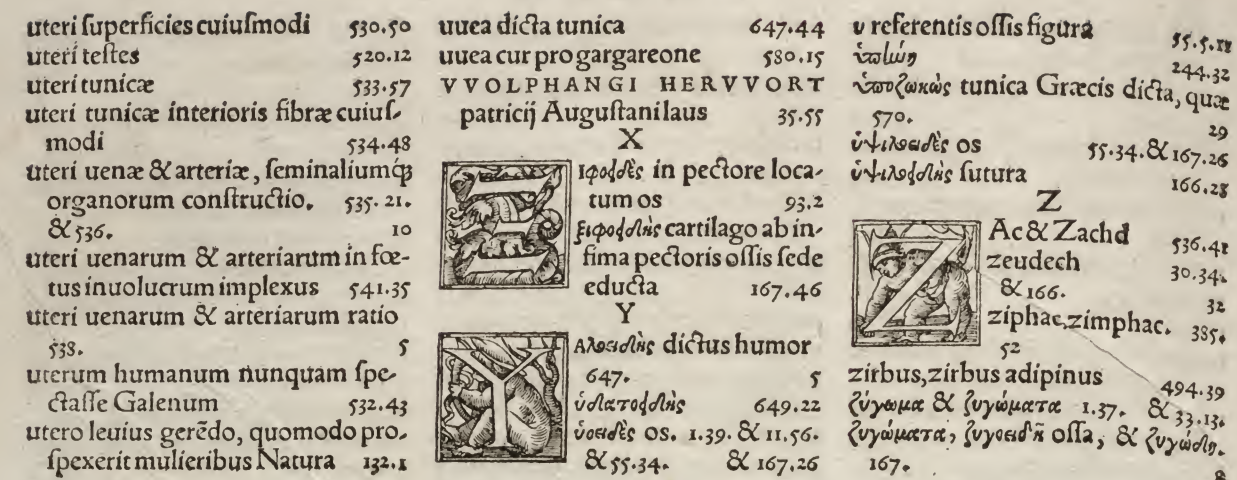 uteri ſuperficies cuiuſmodi 530.50
uteri teſtes 520.12
uteri tunicæ 533.57
uteri tunicæ interioris fibræ cuiuſ-
modi 534.48
uteri uenæ & arteriæ, ſeminaliumq́;
organorum conſtructio. 535. 21.
& 536. 10
uteri uenarum & arteriarum in fœ-
tus inuolucrum implexus 541.35
uteri uenarum & arteriarum ratio
538. 5
uterum humanum nunquam ſpe-
ctaſſe Galenum 532.43
utero leuius gerẽdo, quomodo pro-
ſpexerit mulieribus Natura 132.1
uuea dicta tunica 647.44
uuea cur pro gargareone 580.15
VVOLPHANGI HERVVORT
patricij Auguſtani laus 35.55
X
Ξιφοειδὲς in pectore loca-
tum os 93.2
ξιφοειδὴς cartilago ab in-
fima pectoris oſſis ſede
educta 167.46
Y
Υαλοειδὴς dictus humor
647. 5
ὑδατοειδὴς 649.22
ὑοειδὲς os. 1.39. & 11.56.
& 55.34. & 167.26
υ referentis oſſis figura 55.5.18
244.32
ὑπεζωκὼς tunica Græcis dicta, quæ
570. 29
ὑψιλοειδὲς os 55.34. & 167.26
ὑψιλοειδὴς ſutura 166.28
Z
ZAc & Zachd 536.41
zeudech 30.34.
& 166. 32
ziphac, zimphac. 385.
52
zirbus, zirbus adipinus 494.39
ζύγωμα & ζυγώματα 1.37. & 33.13.
ζυγώματα, ζυγοειδῆ oſſa, &
167. 8